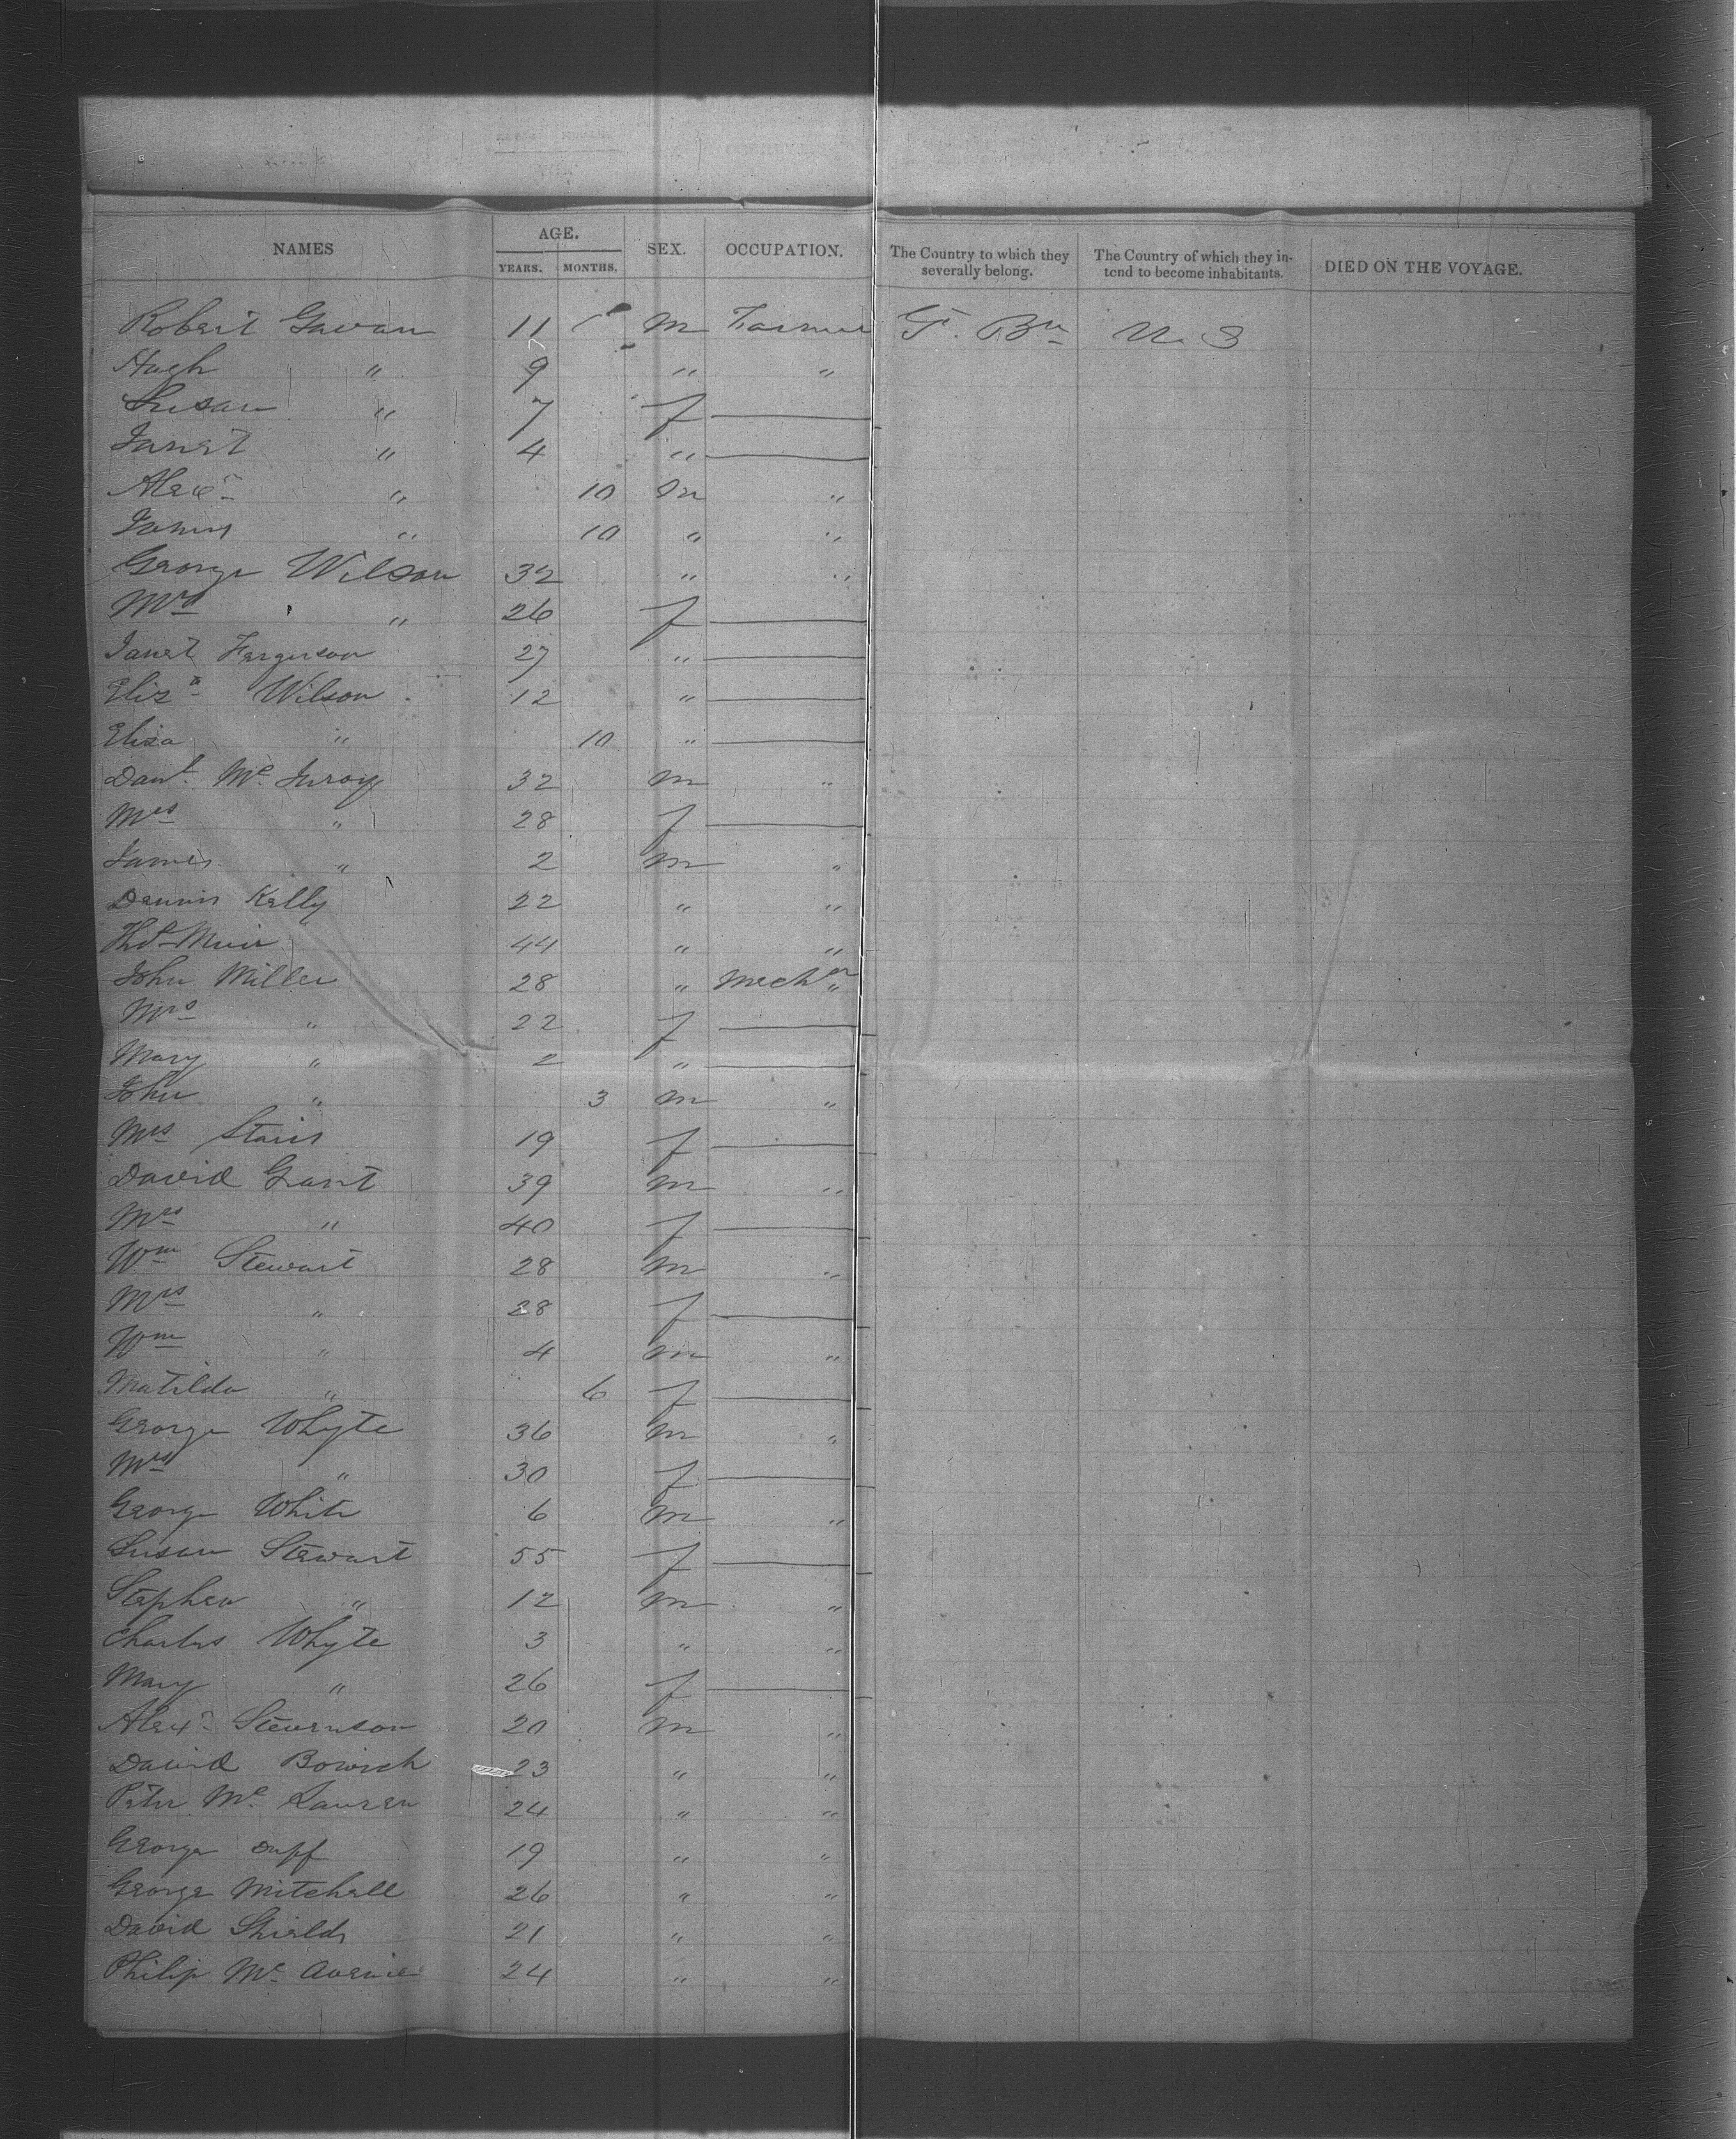 NAMES AGE. YEARS. MONTHS. SEX. OCCUPATION. The Country to which they severally belong. The Country of which they intend to become inhabitants. DIED ON THE VOYAGE.
Robert Gavan 11 m Farmer Gt. Bn U. S
Hugh " 9 " "
Susan " 7 f
Janet " 4 "
Alexr " 10 m "
James " 10 " "
George Wilson 32 " "
Mrs " 26 f
Janet Ferguson 27 "
Eliza Wilson 12 "
Eliza " 10 "
Danl. Mc Inroy 32 m "
Mrs " 28 f
James " 2 m "
Dennis Kelly 22 " "
Thos Muir 44 " "
John Miller 28 " Mech "
Mrs " 22 f
Mary " 2 "
John " 3 m "
Mrs 19 f
David Grant 39 m "
Mrs " 40 f
Wm Stewart 28 m "
Mrs " 28 f
Wm " 4 m "
Matilda " 6 f
George Whyte 36 m "
Mrs " 30 f
George White 6 m "
Susan Stewart 55 f
Stephen " 12 m "
Charles Whyte 3 " "
Mary " 26 f
Alexr Stevenson 20 m "
David 23 " "
Peter Mc Laren 24 " "
George Duff 19 " "
George Mitchell 26 " "
David Shields 21 " "
Philip Mc 24 " "